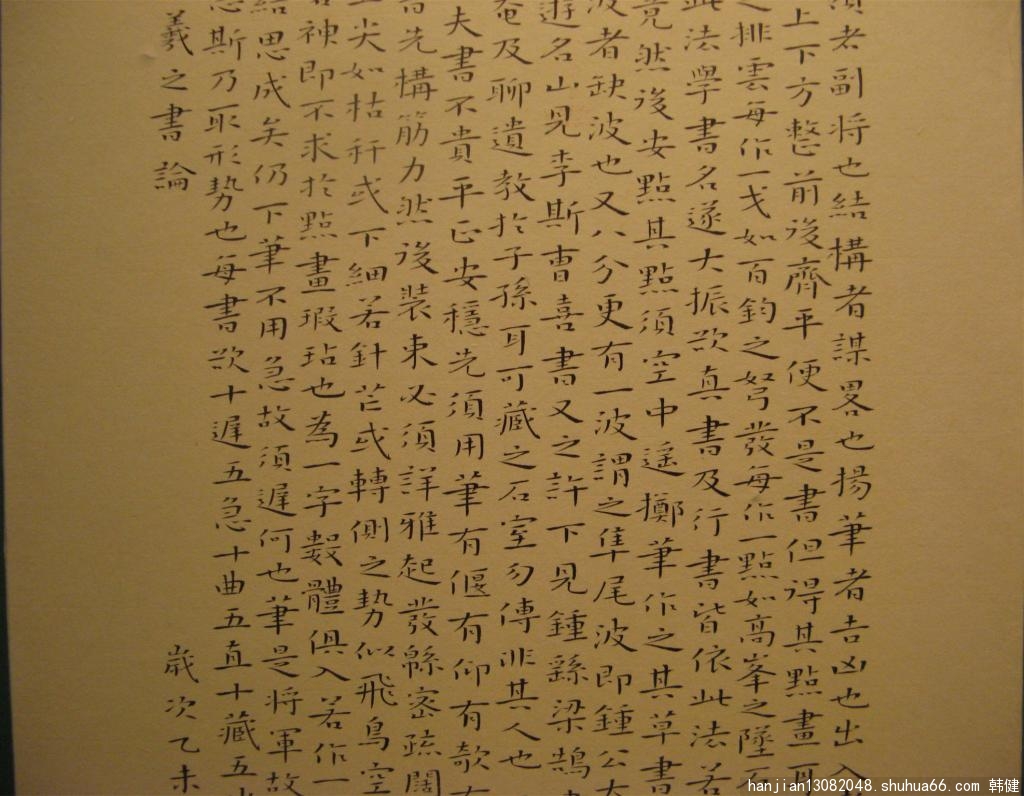 者副將也結構者謀畧也揚筆者吉凶也出入
上下方整前後齊平便不是書但得其點畫耳
排雲每作一戈如百鈞之弩發每作一點如高峯之墜石
此法學書名遂大振欲真書及行書皆依此法若
竟然後安點其點須空中遥擲筆作之其草書
波者缺波也又八分更有一波謂之隼尾波即鍾公太
遊名山見李斯曹喜書又之許下見鍾繇梁鵠
奄及聊遺教於子孫耳可藏之石室勿傳非其人也
夫書不貴平正安穩先須用筆有偃有仰有欹有
者先構筋力然後裝束必須詳雅起發緜密疏闊
上尖如枯秆或下細若針芒或轉側之勢似飛鳥空
神即不求於點畫瑕玷也為一字數體俱入若作一
結思成矣仍下筆不用急故須遲何也筆是將軍故
斯乃取形勢也每書欲十遲五急十曲五直十藏五
羲之書論
歲次乙未
hanjian13082048.shuhua66.com 韩健